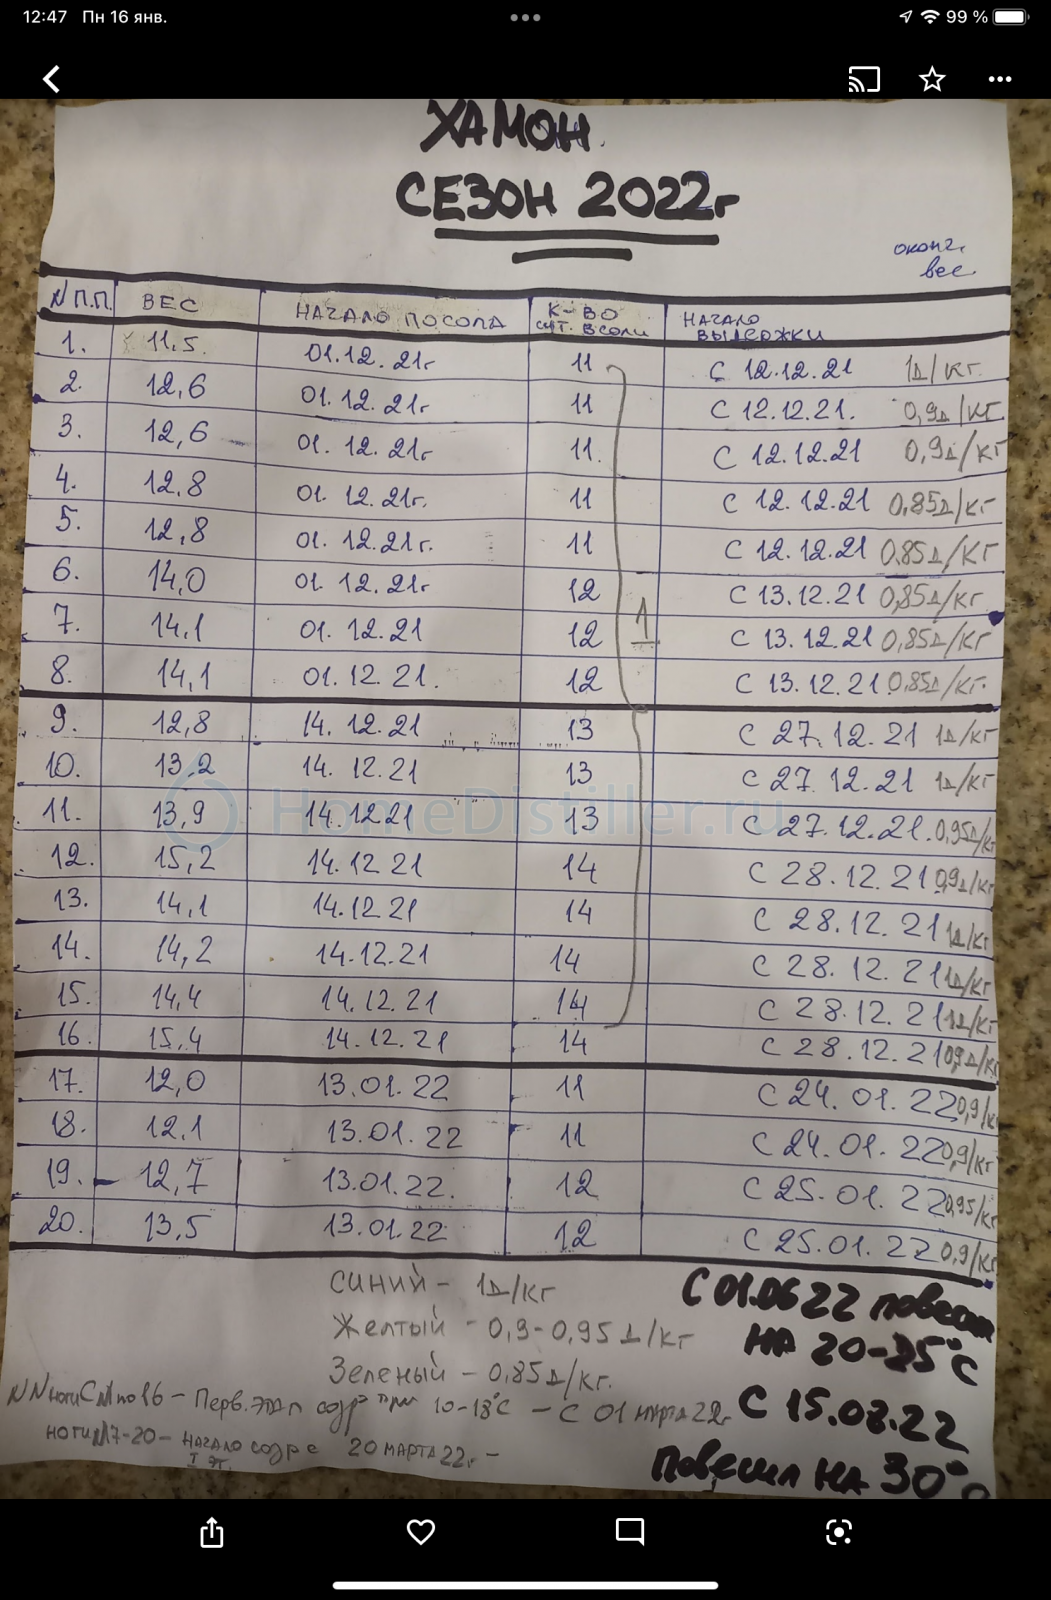 12:47 Пн 16 янв. 99 %
ХАМОН
СЕЗОН 2022г
оконч. вес
N П.П. ВЕС НАЧАЛО ПОСОЛА К-ВО сут. В СОЛИ НАЧАЛО ВЫДЕРЖКИ
1. 11,5 01.12.21г 11 С 12.12.21 1д/кг
2. 12,6 01.12.21г 11 С 12.12.21. 0,9д/кг
3. 12,6 01.12.21г 11. С 12.12.21 0,9д/кг
4. 12,8 01.12.21г. 11 С 12.12.21 0,85д/кг
5. 12,8 01.12.21г. 11 С 12.12.21 0,85д/кг
6. 14,0 01.12.21г 12 С 13.12.21 0,85д/кг
7. 14,1 01.12.21 12 С 13.12.21 0,85д/кг
1
8. 14,1 01.12.21. 12 С 13.12.21 0,85д/кг.
9. 12,8 14.12.21 13 С 27.12.21 1д/кг
10. 13,2 14.12.21 13 С 27.12.21 1д/кг
HomeDistiller.ru
11. 13,9 14.12 21 13 С 27.12.21. 0,95д/кг
12. 15,2 14.12 21 14 С 28.12.21 0,9д/кг
13. 14,1 14.12 21 14 С 28.12.21 1д/кг
14. 14,2 14.12.21 14 С 28.12.21 1д/кг
15. 14,4 14.12.21 14 С 28.12.21 1д/кг
16. 15,4 14.12.21 14 С 28.12.21 0,9д/кг
17. 12,0 13.01.22 11 С 24.01.22 0,9/кг
18. 12,1 13.01.22 11 С 24.01.22 0,9/кг
19. 12,7 13.01.22. 12 С 25.01.22 0,95/кг
20. 13,5 13.01.22 12 С 25.01.22 0,9/кг
СИНИЙ - 1д/кг
Желтый - 0,9-0,95 д/кг
Зеленый - 0,85д/кг.
С 01.06 22 повесил
НА 20-25°С
NN ноги С N1 по 16 - Перв. этап созр при 10-18°С - С 01 марта 22г
ноги N17-20 - начало созр с 20 марта 22г -
I эт.
С 15.07.22
Повесил НА 30°С